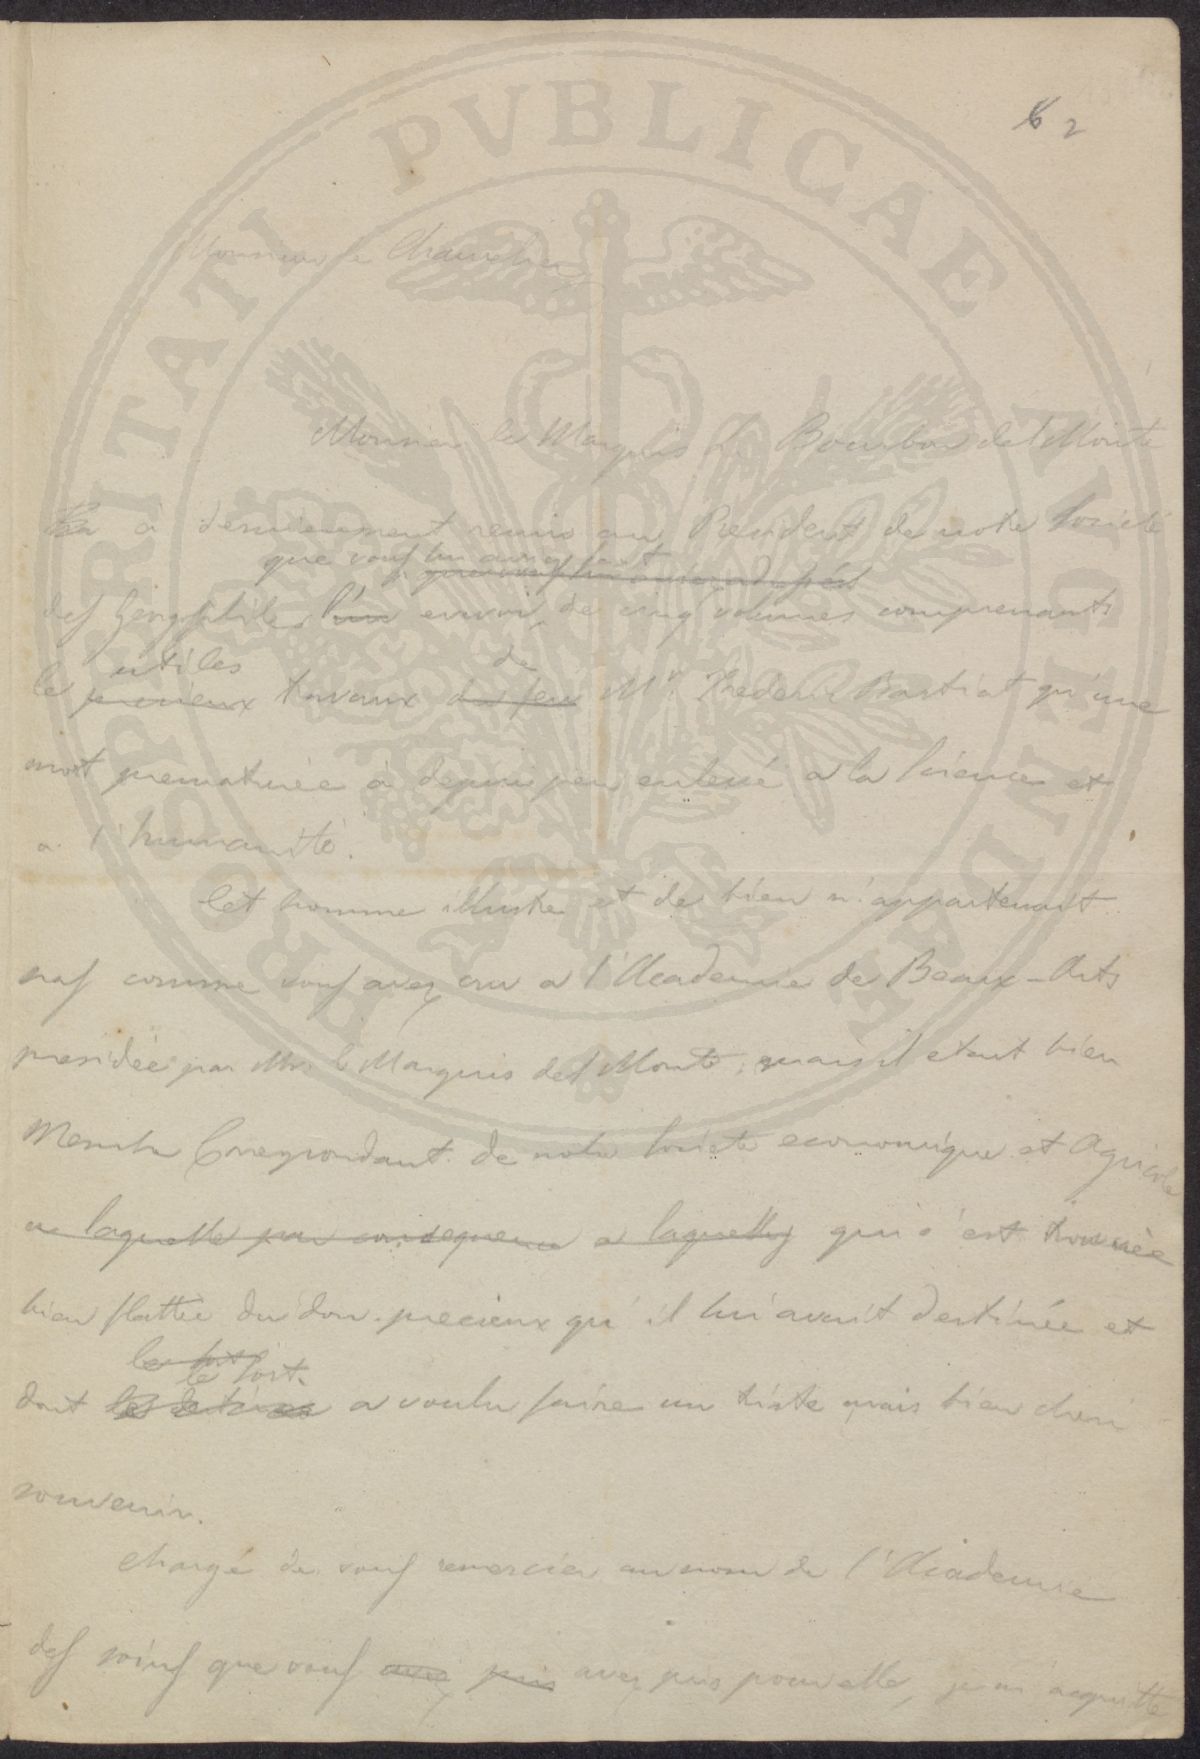 6 2
Monsieur le Chancelier
Monsieur le Marquis de Bourbon del Monte
a dernierement remis au President de notre Société
que vous lui avez fait
des Georgophiles l' envoi de cinq volumes comprenants
utiles de
le precieux travaux du feu Mr. Frederic Bastiat qu'une
mort prematurée à depuis peu enlevé a la science et
a l'humanité.
Cet homme illustre et de bien n'appartenait
pas comme vous avez cru a l'Academie de Beaux-Arts
presidée par Mr. le Marquis del Monte, mais il etait bien
Membre Correspondant de notre Societé economique et Agricole
a laquelle par consequence a laquelle qui s'est trouvée
bien flattée du don precieux qu'il lui avait destinée et
le sort
le sort
dont a voulu faire un triste mais bien cheri
souvenir.
Chargé de vous remercier au nom de l'Academie
des soins que vous avez pris avez pris pour elle, je m'acquitte
PROSPERITATI PVBLICAE AVGENDAE